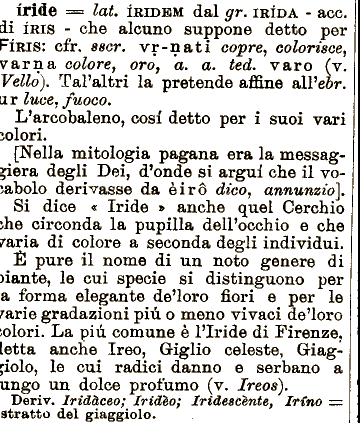 íride = lat. ÍRIDEM dal gr. IRÍDA - acc.
di ÍRIS - che alcuno suppone detto per
FÍRIS: cfr. sscr. vṛ-ṇati copre, colorisce,
varṇa colore, oro, a. a. ted. varo (v.
Vello). Tal'altri la pretende affine all'ebr.
ur luce, fuoco.
L'arcobaleno, cosí detto per i suoi vari
colori.
[Nella mitologia pagana era la messag-
giera degli Dei, d'onde si arguí che il vo-
cabolo derivasse da èirô dico, annunzio].
Si dice « Iride » anche quel Cerchio
che circonda la pupilla dell'occhio e che
varia di colore a seconda degli individui.
È pure il nome di un noto genere di
piante, le cui specie si distinguono per
la forma elegante de'loro fiori e per le
varie gradazioni piú o meno vivaci de'loro
colori. La piú comune è l'Iride di Firenze,
detta anche Ireo, Giglio celeste, Giag-
giolo, le cui radici danno e serbano a
lungo un dolce profumo (v. Ireos).
Deriv. Iridàceo; Iridèo; Iridescènte, Iríno =
estratto del giaggiolo.